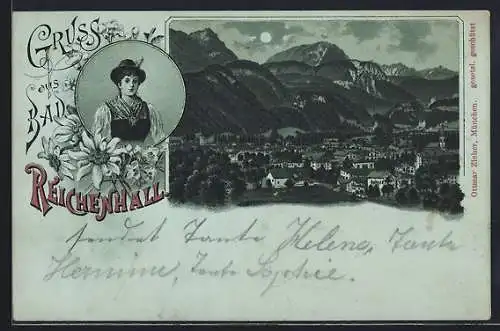 GRUSS
aus
BAD
REICHENHALL.
Ottmar Zieher, München. gesetzl. geschützt
sendet Tante Helene, Tante
Hermine, Tante Sophie.